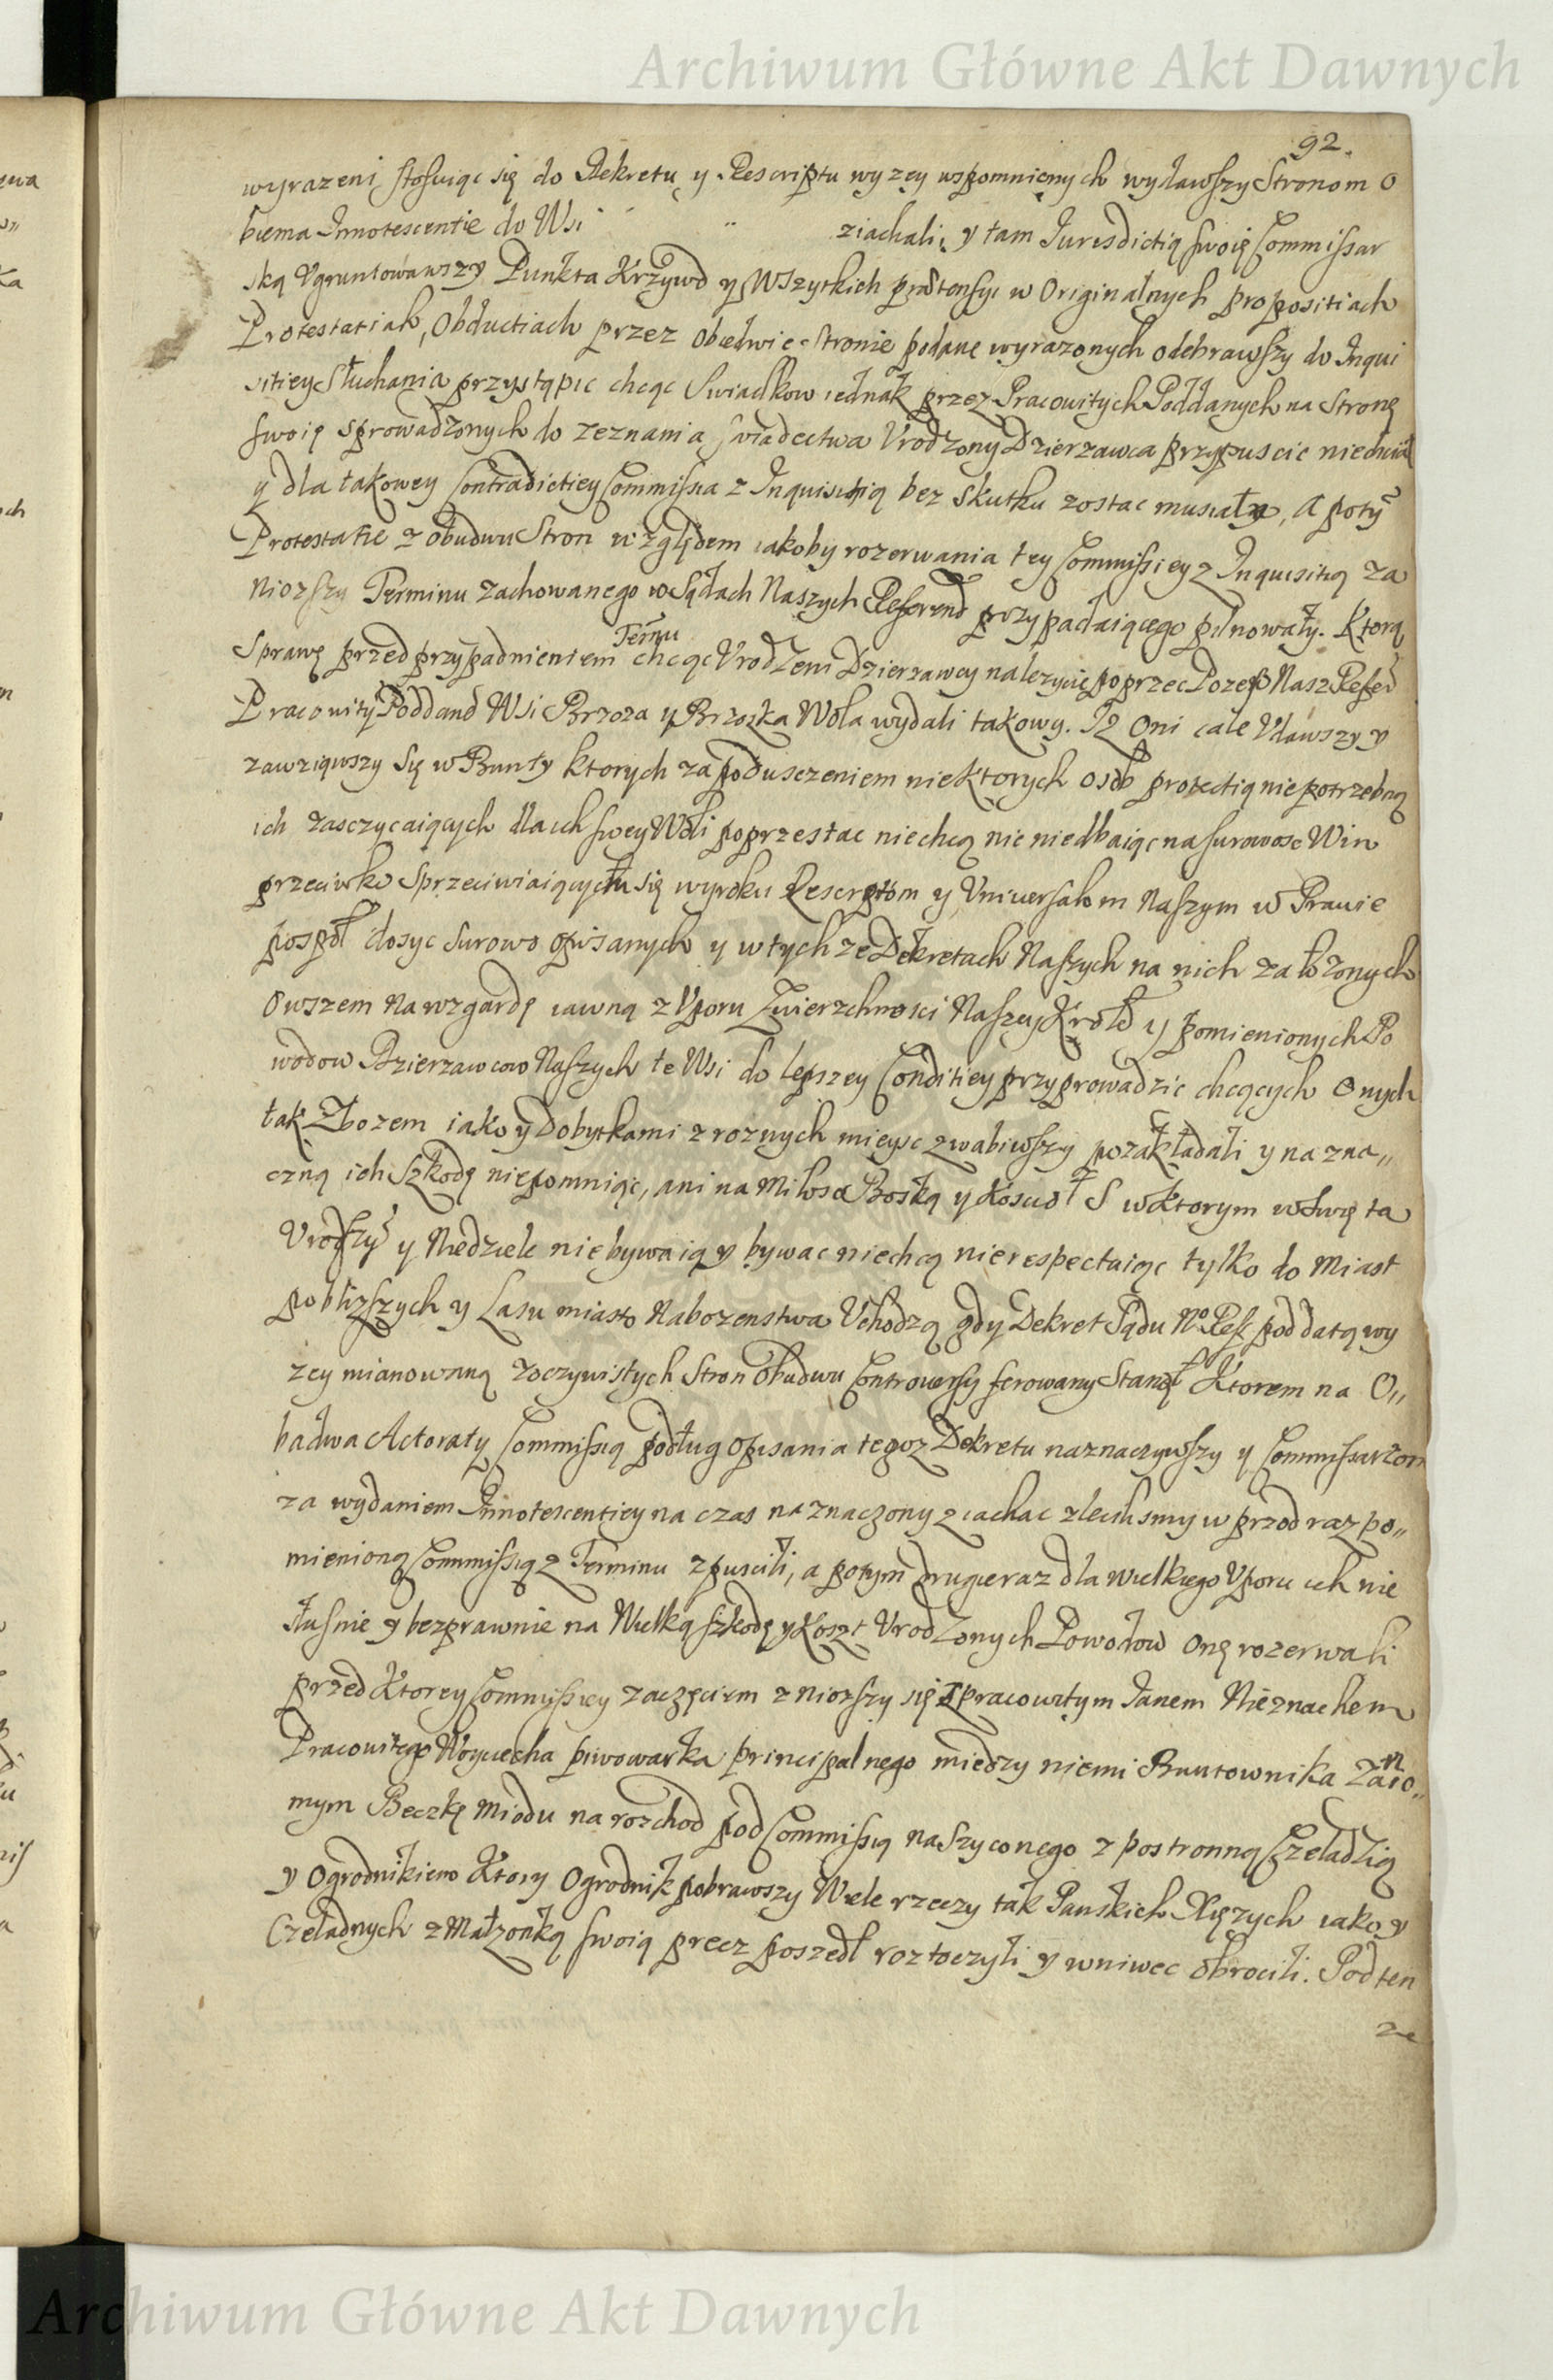 Archiwum Główne Akt Dawnych
92.
wyrazeni stosuiąc się do Dekretu y Rescriptu wyzey wspomnionych wydawszy Stronom o
biema Innotescentie do Wsi ziachali, y tam Jurisdictią swoię Commissar
ską Vgruntowawszy Punkta Krzywd y Wszytkich prætensyi w Originalnych propositiach
Protestatiah, Obductiach przez obiedwie Stronie podane wyrazonych odebrawszy do Inqui
sitiey Słuchania przystąpic chcąc Swiadkow iednak przez Pracowitych Poddanych na Stronę
swoię sprowadzonych do zeznania swiadectwa Vrodzony Dzierzawca przypuscic niechciał
y dla takowey Contradictiey Commissia z Inquisitią bez skutku zostac musiały, A potỹ
Protestatie z obudwu Stron względem iakoby rozerwania tey Commissiey z Inquisitią za
niozszy Terminu zachowanego w Sądach Naszych Referend przypadaiącego pilnowały. Ktorą
Sprawę przed przypadnieniem Termu chcąc Vrodzeni Dzierzawcy nalezycie poprzec Pozew Nasz Refer
Pracowitỹ Poddand Wsi Brzoza y Brzozka Wola wydali takowy. Iz Oni cale Vdawszy y
zawziąwszy się w Bunty ktorych za poduszczeniem niektorych osob protectią niepotrzebną
ich zasczycaiących dla ich swey Woli poprzestac niechcą nic niedbaiąc na surowosc Win
przeciwko Sprzeciwiaiącym się wyroku Rescriptom y Vniwersałom Naszym w Prawie
pospół dosyc surowo opisanych y w tych ze Dekretach Naszych na nich załozonych
Owszem na wzgardę iawną z Vporu Zwierzchnosci Naszey Krold y pomienionych Po
wodow Dzierzawcow Naszych te Wsi do lepszey Conditiey przyprowadzic chcących Onych
tak Zbozem iako y Dobytkami z roznych mieysc zwabiwszy pozakładali y na zna„
czną ich Szkodę niepomniąc, ani na Miłosc Boską y Kosciół S w ktorym w Swięta
Vroczỹ y Niedziele niebywaią y bywac niechcą nierespectuiąc tylko do Miast
poblizszych y Lasu miasto Nabozenstwa Vchodzą gdy Dekret Sądu No Ref pod datą wy
zey mianowaną z oczywistych Stron obudwu Controwersy ferowany Stanął Ktorem na O„
badwa Actoraty Commissią podług opisania tegoz Dekretu naznaczywszy y Commissarzom
za wydaniem Innotescentiey na czas naznaczony ziachac zlecilismy w przod raz po„
mienioną Commissią z Terminu zpuscili, a potym drugi raz dla wielkiego Vporu ich nie
słusnie y bezprawnie na Wielką szkodę y Koszt Vrodzonych Powodow onę rozerwali
przed Ktorey Commissiey zaczęciem zniozszy się z pracowitym Janem Nieznachem
Pracowitego Woyciecha piwowarka principalnego między niemi Buntownika
mym Beczkę Miodu na rozchod pod Commissią naszyconego z postronną Czeladzią
y Ogrodnikiem Ktory Ogrodnik pobrawszy Wiele rzeczy tak Panskich Xięzych iako y
Czeladnych z Małzonką swoią precz poszedł roztoczyli y wniwec obrocili. Pod ten
ze
Archiwum Główne Akt Dawnych